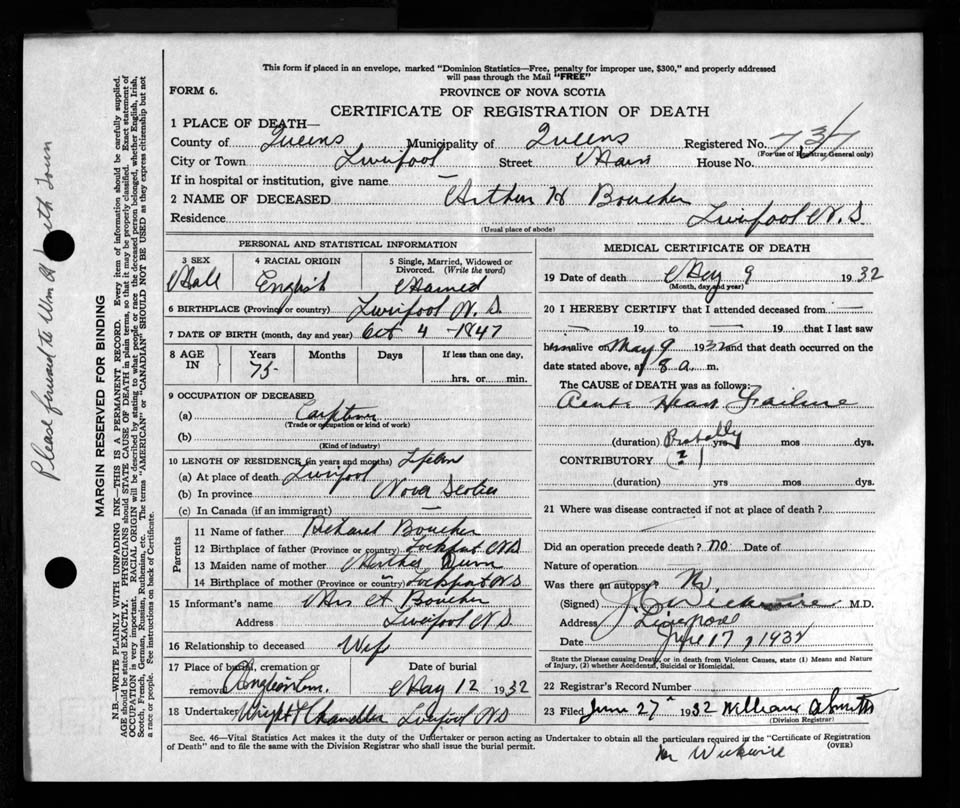 This form if placed in an envelope, marked "Dominion Statistics—Free, penalty for improper use, $300," and properly addressed
will pass through the Mail "FREE"
FORM 6.
PROVINCE OF NOVA SCOTIA
CERTIFICATE OF REGISTRATION OF DEATH
1 PLACE OF DEATH—
County of Queens Municipality of Queens Registered No. 737
(For use of Registrar General only)
City or Town Liverpool Street Main House No.
If in hospital or institution, give name —
2 NAME OF DECEASED Arthur H Boucher
Residence Liverpool N.S
(Usual place of abode)
PERSONAL AND STATISTICAL INFORMATION
3 SEX 4 RACIAL ORIGIN 5 Single, Married, Widowed or Divorced. (Write the word)
Male English Married
6 BIRTHPLACE (Province or country) Liverpool N.S.
7 DATE OF BIRTH (month, day and year) Oct 4 - 1847
8 AGE IN Years Months Days If less than one day,
75 hrs. or min.
9 OCCUPATION OF DECEASED
(a)
(Trade or occupation or kind of work)
(b)
(Kind of industry)
10 LENGTH OF RESIDENCE (in years and months)
(a) At place of death Liverpool
(b) In province Nova Scotia
(c) In Canada (if an immigrant) —
Parents
11 Name of father Richard Boucher
12 Birthplace of father (Province or country) Lockport N.S
13 Maiden name of mother Dunn
14 Birthplace of mother (Province or country) Lockport N.S
15 Informant's name Mrs A Boucher
Address Liverpool N S
16 Relationship to deceased Wife
17 Place of burial, cremation or removal Anglican Cem. Date of burial May 12 1932
18 Undertaker Wright & Chandler Liverpool N.S
MEDICAL CERTIFICATE OF DEATH
19 Date of death May 9 1932
(Month, day and year)
20 I HEREBY CERTIFY that I attended deceased from —
— 19 to — 19 that I last saw
him alive on May 9 1932 and that death occurred on the
date stated above, at 8 a. m.
The CAUSE OF DEATH was as follows:
Acute Heart Failure
(duration) Probably yrs mos dys.
CONTRIBUTORY (?)
(duration) yrs mos dys.
21 Where was disease contracted if not at place of death?
Did an operation precede death? no Date of
Nature of operation
Was there an autopsy? No.
(Signed) J C Wickwire M.D.
Address Liverpool
Date June 17, 1932
State the Disease causing Death, or in death from Violent Causes, state (1) Means and Nature
of Injury, (2) whether Accidental, Suicidal or Homicidal.
22 Registrar's Record Number
23 Filed June 27th 1932 William
(Division Registrar)
Sec. 46—Vital Statistics Act makes it the duty of the Undertaker or person acting as Undertaker to obtain all the particulars required in the "Certificate of Registration
of Death" and to file the same with the Division Registrar who shall issue the burial permit. (OVER)
Wickwire
MARGIN RESERVED FOR BINDING
N.B.—WRITE PLAINLY WITH UNFADING INK—THIS IS A PERMANENT RECORD. Every item of information should be carefully supplied.
AGE should be stated EXACTLY. PHYSICIANS should STATE CAUSE OF DEATH in plain terms, so that it may be properly classified. Exact statement of
OCCUPATION is very important. RACIAL ORIGIN will be described by stating to what people or race the deceased person belonged, whether English, Irish,
Scotch, French, German, Russian, Ruthenian, etc. The terms "AMERICAN" or "CANADIAN" SHOULD NOT BE USED as they express citizenship but not
a race or people. See instructions on back of Certificate.
Please forward to Wm Smith Town